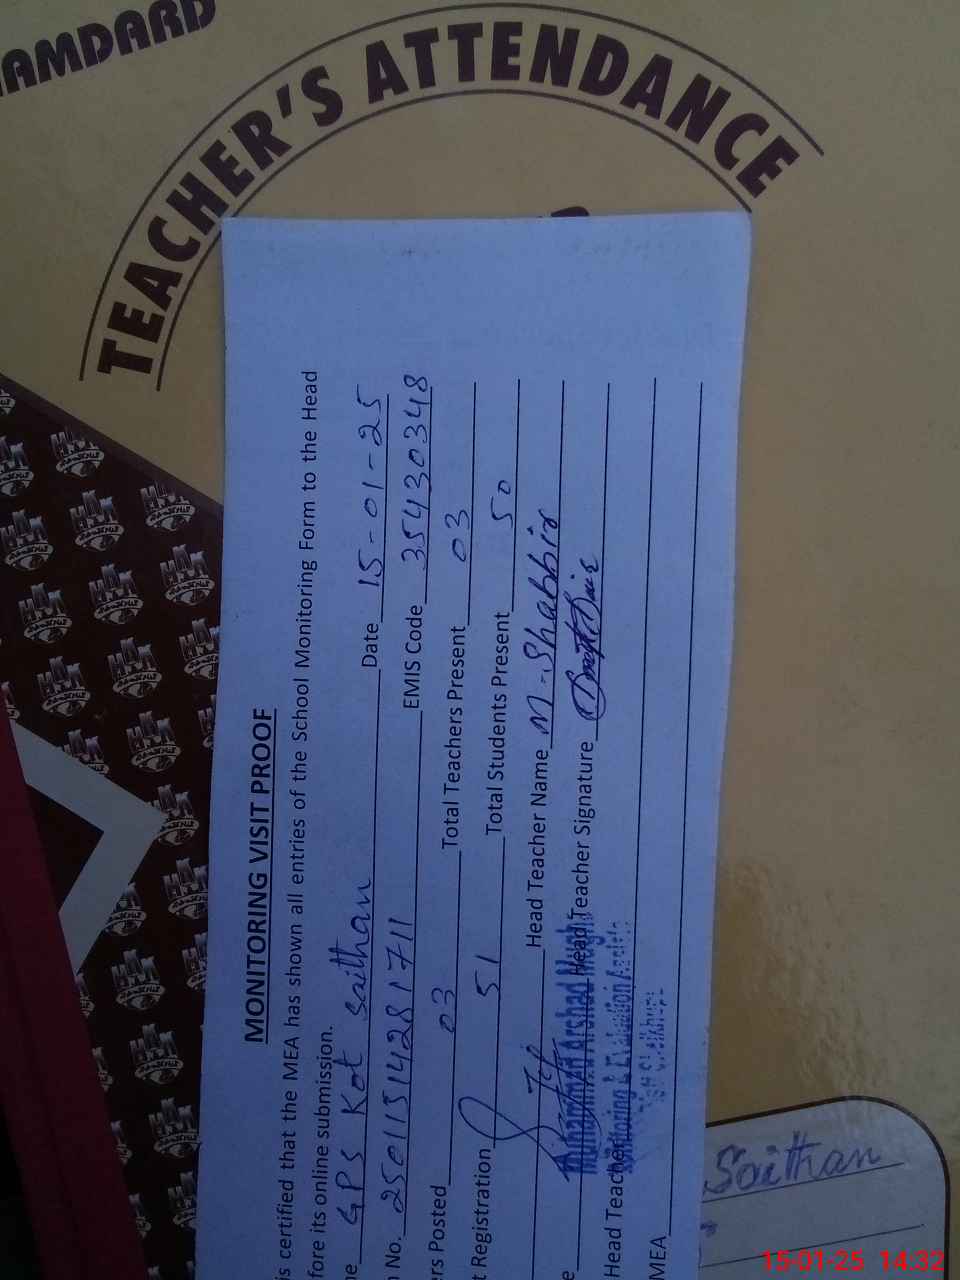 HAMDARD
TEACHER'S ATTENDANCE
MONITORING VISIT PROOF
is certified that the MEA has shown all entries of the School Monitoring Form to the Head
fore its online submission.
GPS Kot Saithan Date 15-01-25
No. 25011514281711 EMIS Code 35430348
Posted 03 Total Teachers Present 03
Registration 51 Total Students Present 50
Head Teacher Name M-Shabbir
Head Teacher Signature
Muhammad Arshad Mughal
Monitoring & Evaluation Assistt
Head Teacher
MEA
Saithan
15-01-25 14:32